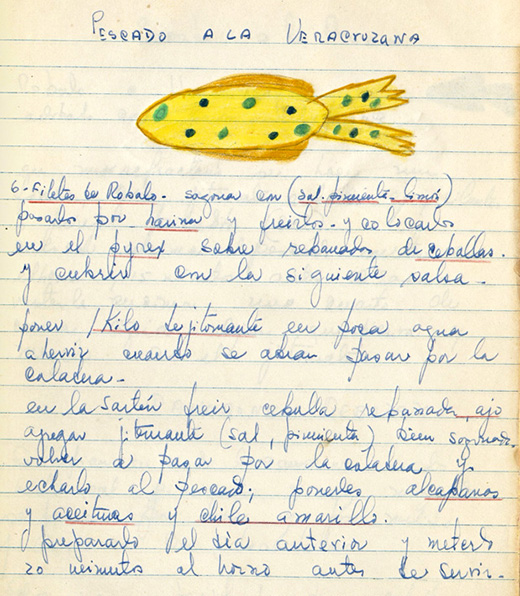 PESCADO A LA VERACRUZANA
6- Filetes de Robalo - sazonar con (sal. pimienta - limón)
pasarlos por harina y freirlos - y colocarlos
en el pyrex sobre rebanadas de cebollas.
y cubrir con la siguiente salsa -
poner 1 Kilo de jitomante en poca agua
a hervir cuando se abran pasar por la
coladera -
en la sartén freir cebolla rebanada, ajo
agregar jitomante (sal, pimienta) bien sazonada.
volver a pasar por la coladera y
echarlo al pescado; ponerles alcaparras
y aceitunas y chile amarillo.
prepararlo el día anterior y meterlo
20 minutos al horno antes de servir -